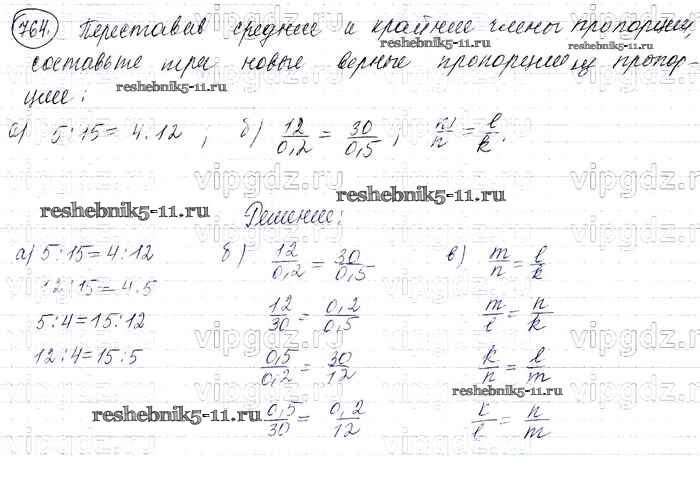 764. Переставив средние и крайние члены пропорции,
reshebnik5-11.ru reshebnik5-11.ru
составьте три новые верные пропорции из пропор-
reshebnik5-11.ru
ции:
а) 5:15 = 4:12 ; б) 12/0,2 = 30/0,5 ; m/n = l/k.
vipgdz.ru vipgdz.ru vipgdz.ru
reshebnik5-11.ru
reshebnik5-11.ru Решение:
а) 5:15=4:12 б) 12/0,2 = 30/0,5 в) m/n = l/k
vipgdz.ru vipgdz.ru vipgdz.ru
12:15=4:5
5:4=15:12 12/30 = 0,2/0,5 m/l = n/k
vipgdz.ru vipgdz.ru vipgdz.ru
12:4=15:5 0,5/0,2 = 30/12 k/n = l/m
reshebnik5-11.ru
reshebnik5-11.ru 0,5/30 = 0,2/12 k/l = n/m
vipgdz.ru vipgdz.ru vipgdz.ru